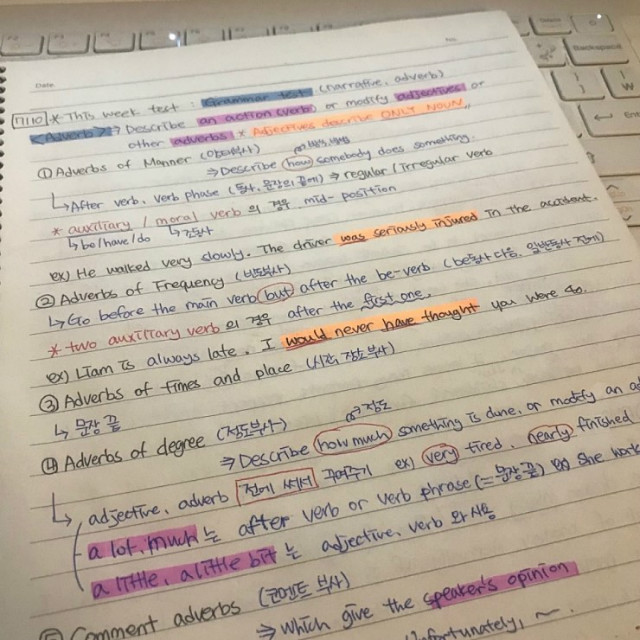 Date.
No.
7110 * This week test : Grammar test (narrative, adverb)
<Adverb> ⇒ Describe an action (verb) or modify adjectives or
other adverbs * Adjectives describe ONLY NOUN.
① Adverbs of Manner
⇒ Describe how somebody does something.
↳ After verb, verb phrase (동사, 문장의 끝에) ⇒ regular / Irregular verb
* auxiliary / moral verb 의 경우 mid-position
↳ be/have/do ↳ 조동사
ex) He walked very slowly. The driver was seriously injured in the accident.
② Adverbs of Frequency (빈도부사)
↳ Go before the main verb but after the be-verb (be동사 다음, 일반동사 전에)
* two auxiliary verb 의 경우 after the first one.
ex) Liam is always late. I would never have thought you were so.
③ Adverbs of times and place (시간, 장소 부사)
↳ 문장 끝
④ Adverbs of degree (정도부사)
정도
⇒ Describe how much something is done, or modify an ad
↳ adjective, adverb 전에 써서 꾸며주기 ex) very tired, nearly finished
a lot, much 는 after verb or verb phrase (= 문장 끝) ex) She work
a little, a little bit 는 adjective, verb 와 사용
⑤ Comment adverbs (코멘트 부사)
⇒ Which give the speaker's opinion
Unfortunately, ~.
Backspace
W
Enter